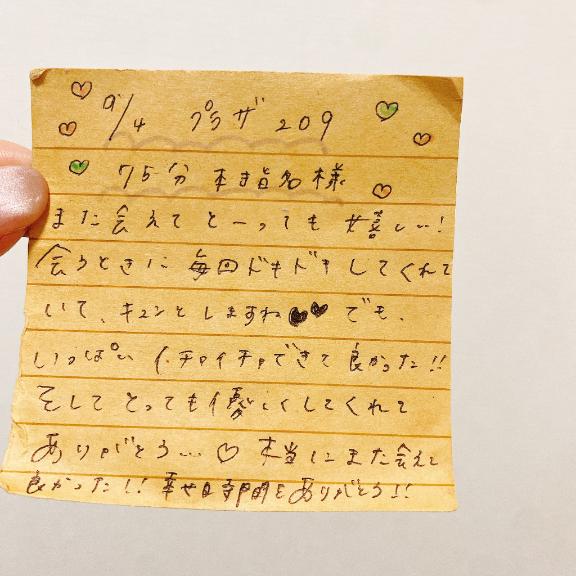 9/4 プラザ 209
75分 本指名様
また会えてとーっても嬉しい!
会うときに毎回ドキドキしてくれて
いて、キュンとしますね♥♥でも、
いっぱいイチャイチャできて良かった!!
そしてとっても優しくしてくれて
ありがとう…♡ 本当にまた会えて
良かった!! 幸せ時間をありがとう!!